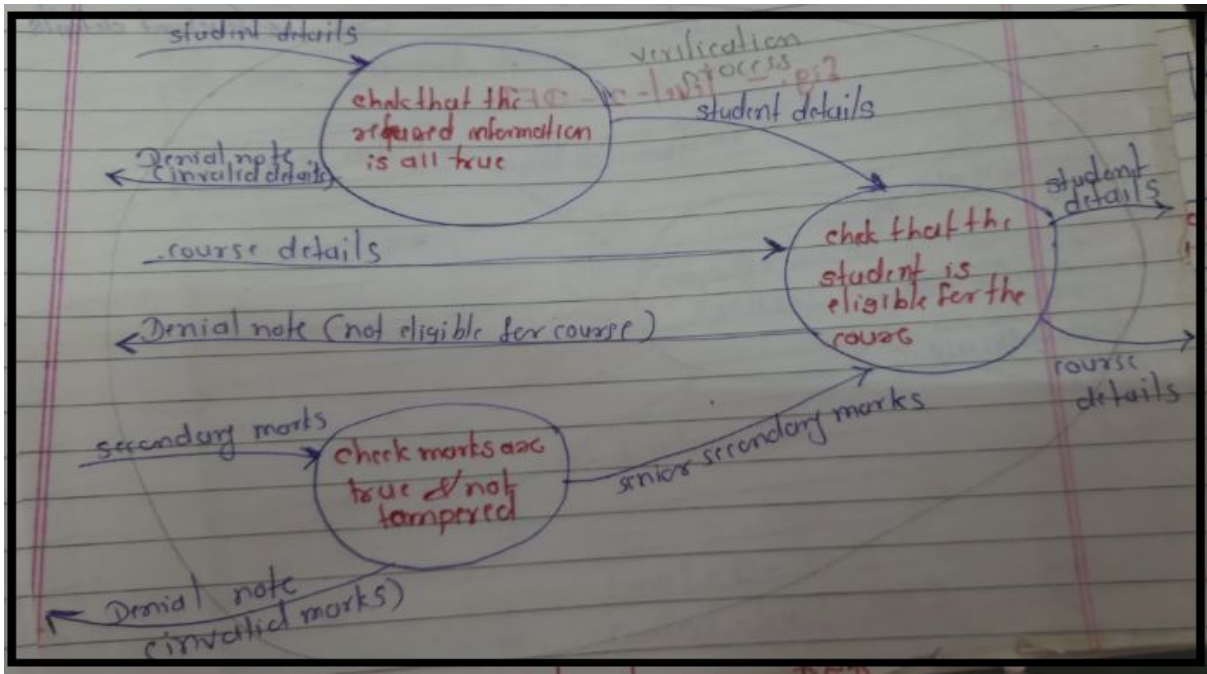 student details
verification
process
chek that the
requred information
is all true
student details
Denial note
(invalid details)
student
details
course details
chek that the
student is
eligible for the
Denial note (not eligible for course)
course
details
secondary marks
check marks are
true & not
tampered
senior secondary marks
Denial note
(invalid marks)